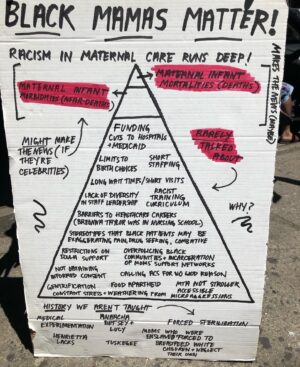 BLACK MAMAS MATTER!
RACISM IN MATERNAL CARE RUNS DEEP!
MATERNAL INFANT
MORBIDITIES (NEAR-DEATHS)
MATERNAL INFANT
MORTALITIES (DEATHS)
MAKES THE NEWS (MAYBE)
MIGHT MAKE
THE NEWS (IF
THEY'RE
CELEBRITIES)
RARELY
TALKED
ABOUT
WHY?
FUNDING
CUTS TO HOSPITALS
+ MEDICAID
LIMITS TO
BIRTH CHOICES
SHORT
STAFFING
LONG WAIT TIMES/SHORT VISITS
LACK OF DIVERSITY
IN STAFF LEADERSHIP
RACIST
TRAINING
CURRICULUM
BARRIERS TO HEALTHCARE CAREERS
(BREONNA TAYLOR WAS IN NURSING SCHOOL)
STEREOTYPES THAT BLACK PATIENTS MAY BE
EXAGGERATING PAIN, DRUG SEEKING, COMBATIVE
RESTRICTIONS ON
DOULA SUPPORT
OVERPOLICING BLACK
COMMUNITIES + INCARCERATION
OF MOMS SUPPORT NETWORKS
NOT OBTAINING
INFORMED CONSENT
CALLING ACS FOR NO GOOD REASON
GENTRIFICATION
FOOD APARTHEID
MTA NOT STROLLER
ACCESSIBLE
CONSTANT STRESS + WEATHERING FROM MICROAGGRESSIONS
HISTORY WE AREN'T TAUGHT
MEDICAL
EXPERIMENTATION
ANARCHA
BETSEY +
LUCY
FORCED STERILIZATION
HENRIETTA
LACKS
TUSKEGEE
MOMS WHO WERE
ENSLAVED FORCED TO
BREASTFEED WHITE
CHILDREN + NEGLECT
THEIR OWN